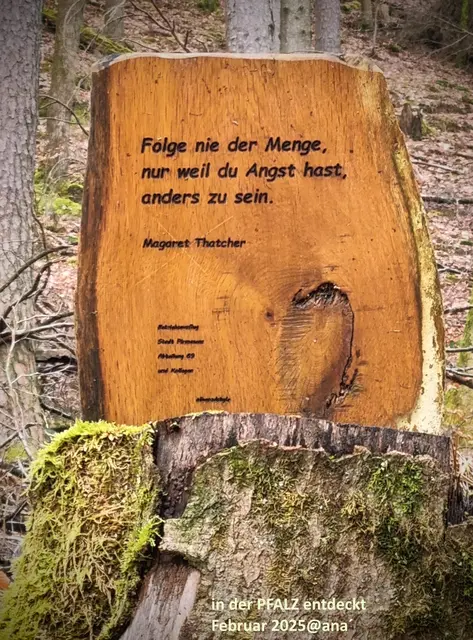 Folge nie der Menge,
nur weil du Angst hast,
anders zu sein.
Magaret Thatcher
Betriebsausflug
Stadt Pirmasens
Abteilung 69
und Kollegen
in der PFALZ entdeckt
Februar 2025@ana